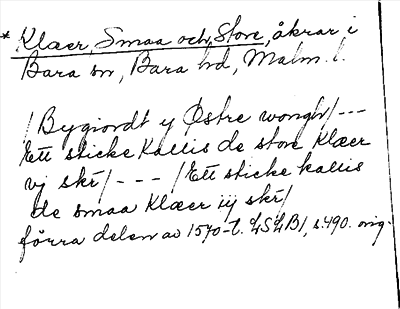 * Klæer, Smaa och Store, åkrar i
Bara sn, Bara hd, Malm. l.
/Bygiordt y Østre wongh/---
Ett sticke kallis de store Klæer
vj skr/--- /Ett sticke kallis
de smaa Klæer iij skr/
förra delen av 1570-t. LSLB1, s. 490. orig.